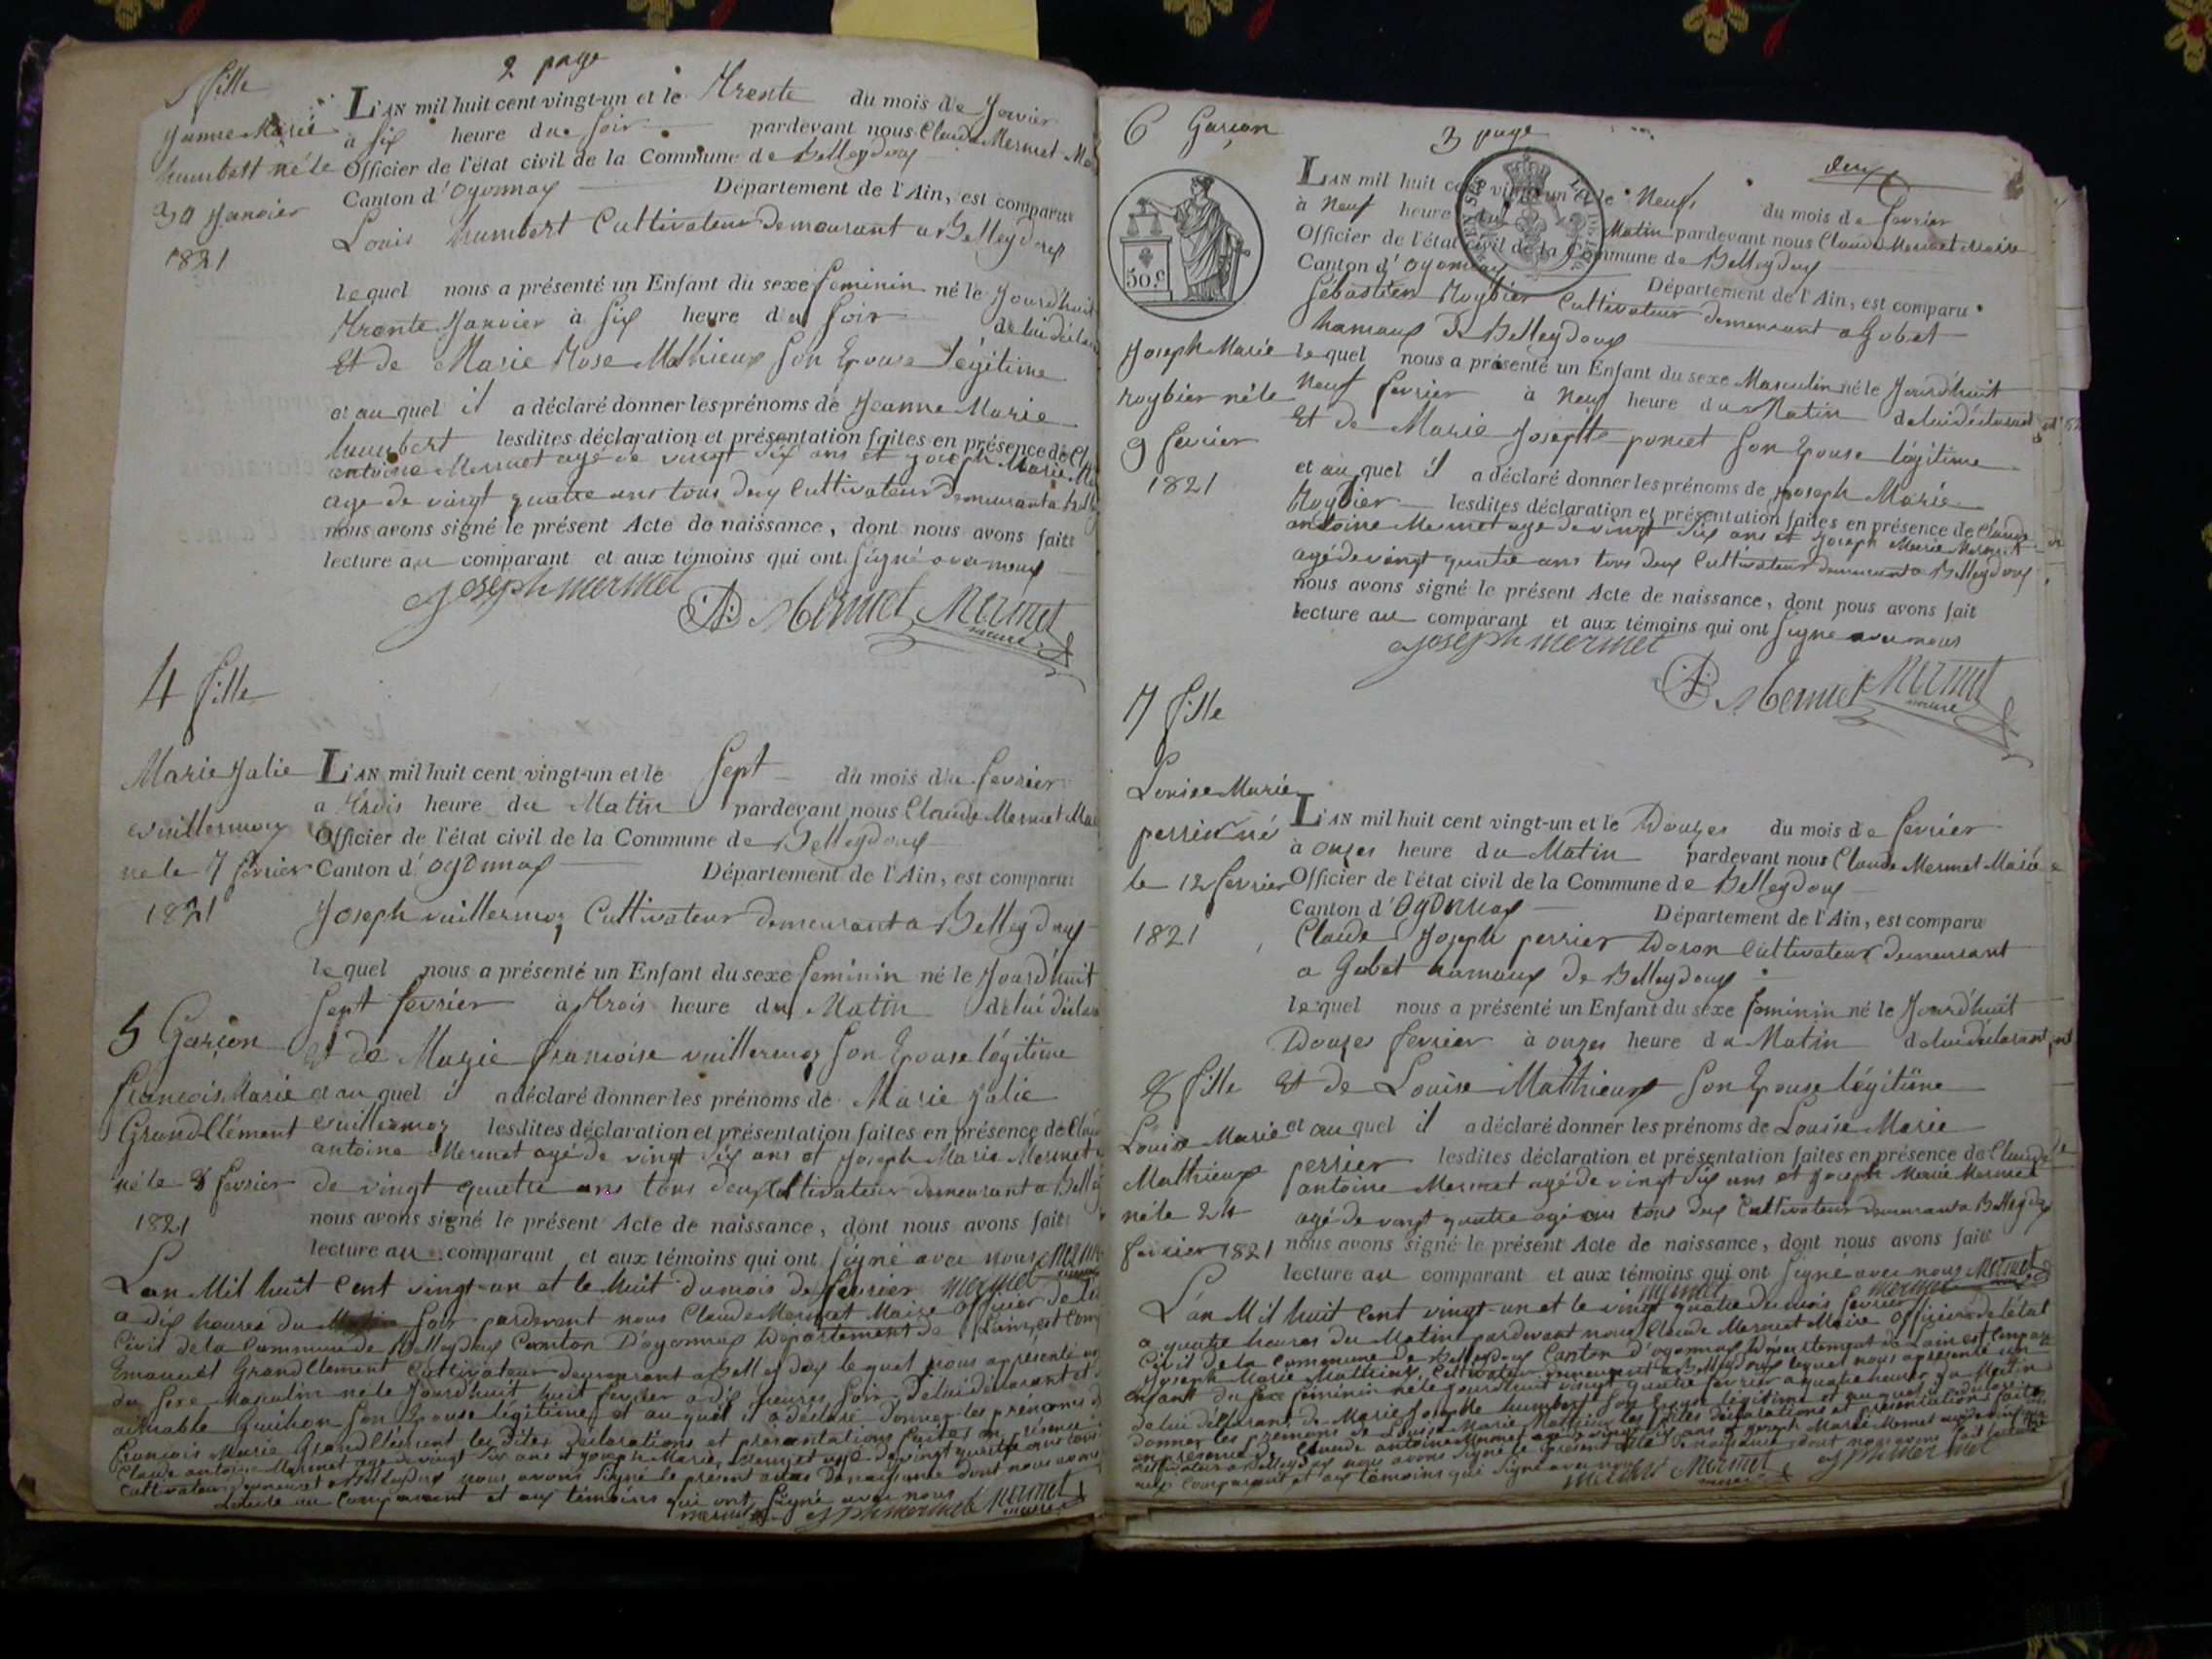 2 page
fille
Jeanne Marie
humbert né le
30 Janvier
1821
L'AN mil huit cent vingt-un et le Trente du mois de Janvier
à six heure du soir pardevant nous Claude Mermet
Officier de l'état civil de la Commune de Belleydoux
Canton d'Oyonnax Département de l'Ain, est comparu
Louis humbert Cultivateur demeurant a Belleydoux
lequel nous a présenté un Enfant du sexe feminin né le Jourd'huit
Trente Janvier à six heure du soir de lui déclarant
Et de Marie Rose Mathieux son Epouse légitime
et au quel il a déclaré donner les prénoms de Jeanne Marie
humbert lesdites déclaration et présentation faites en présence de Cl
antoine Mermet agé de vingt six ans et Joseph Marie
age de vingt quatre ans tous deux Cultivateur demeurant a Belley
nous avons signé le présent Acte de naissance, dont nous avons fait
lecture au comparant et aux témoins qui ont signé avec nous
Joseph mermet
Mermet Mermet
maire
4 fille
Marie Julie
vuillermoz
né le 7 fevrier
1821
L'AN mil huit cent vingt-un et le sept du mois du fevrier
a trois heure du Matin pardevant nous Claude Mermet
Officier de l'état civil de la Commune de Belleydoux
Canton d'Oyonnax Département de l'Ain, est comparu
Joseph vuillermoz Cultivateur demeurant a Belleydoux
lequel nous a présenté un Enfant du sexe feminin né le Jourd'huit
sept fevrier à trois heure du Matin de lui
Et de Marie francoise vuillermoz son Epouse légitime
et au quel il a déclaré donner les prénoms de Marie Julie
vuillermoz lesdites déclaration et présentation faites en présence de
antoine Mermet agé de vingt six ans et Joseph Marie Mermet
de vingt quatre ans tous deux Cultivateur demeurant a Belley
nous avons signé le présent Acte de naissance, dont nous avons fait
lecture au comparant et aux témoins qui ont signé avec nous
mermet
5 Garçon
francois Marie
Grand Clément
né le 8 fevrier
1821
L'an Mil huit Cent vingt-un et le huit du mois de fevrier
a dix heures du soir pardevant nous Claude Mermet Maire officier de
Civil de la Commune de Belleydoux Canton D'oyonnax Département de
Emanuel Grand Clement Cultivateur demeurant a Belleydoux lequel nous a présenté
du sexe Masculin né le Jourd'huit huit fevrier a dix heures soir, de lui déclarant et
aimable son Epouse légitime et au quel il a déclaré donner les prénoms
francois Marie Grand Clément les dites déclarations et présentations faites en présence
Claude antoine Mermet agé de vingt six ans et Joseph Marie Mermet agé de vingt quatre ans tous
Cultivateur demeurant a Belleydoux nous avons signé le présent acte de naissance dont nous avons
Lecture au Comparant et aux témoins qui ont signé avec nous
mermet Jph mermet Mermet
maire
3 page
deux
6 Garçon
50.c
Joseph Marie
roybier né le
9 fevrier
1821
L'AN mil huit cent vingt-un et le Neuf du mois de fevrier
à Neuf heure du Matin pardevant nous Claude Mermet Maire
Officier de l'état civil de la Commune de Belleydoux
Canton d'Oyonnax Département de l'Ain, est comparu
Sebastien Roybier Cultivateur demeurant a Gobet
hamaux de Belleydoux
lequel nous a présenté un Enfant du sexe Masculin né le Jourd'huit
Neuf fevrier à Neuf heure du Matin de lui déclarant
Et de Marie Josephte poncet son Epouse légitime
et au quel il a déclaré donner les prénoms de Joseph Marie
Roybier lesdites déclaration et présentation faites en présence de Claude
antoine Mermet agé de vingt six ans et Joseph Marie Mermet
agé de vingt quatre ans tous deux Cultivateur demeurant a Belleydoux
nous avons signé le présent Acte de naissance, dont nous avons fait
lecture au comparant et aux témoins qui ont signé avec nous
Joseph mermet
Mermet Mermet
maire
7 fille
Louise Marie
perrier né
le 12 fevrier
1821
L'AN mil huit cent vingt-un et le Douzes du mois de fevrier
à onzes heure du Matin pardevant nous Claude Mermet Maire
Officier de l'état civil de la Commune de Belleydoux
Canton d'Oyonnax Département de l'Ain, est comparu
Claude Joseph perrier Doron Cultivateur demeurant
a Gobet hamaux de Belleydoux
lequel nous a présenté un Enfant du sexe feminin né le Jourd'huit
Douzes fevrier à onzes heure du Matin de lui déclarant
Et de Louise Mathieux son Epouse légitime
et au quel il a déclaré donner les prénoms de Louise Marie
perrier lesdites déclaration et présentation faites en présence de Claude
antoine Mermet agé de vingt six ans et Joseph Marie Mermet
agé de vingt quatre tous deux Cultivateur demeurant a Belleydoux
nous avons signé le présent Acte de naissance, dont nous avons fait
lecture au comparant et aux témoins qui ont signé avec nous Mermet
mermet mermet
8 fille
Louise Marie
Mathieux
né le 24
fevrier 1821
L'an Mil huit Cent vingt-un et le vingt quatre du mois fevrier
a quatre heures du Matin pardevant nous Claude Mermet Maire officier de l'état
Civil de la Commune de Belleydoux Canton d'oyonnax Département de Lain est Comparu
Joseph Marie Mathieux Cultivateur demeurant a Belleydoux lequel nous a présenté un
enfant du sexe féminin né le jourdhuit vingt quatre fevrier a quatre heures du Matin
de lui déclarant de Marie Josephte humbert son Epouse légitime et au quel il a déclaré
donner les prénoms de Louise Marie Mathieux les dites déclarations et présentation faites
en présence de Claude antoine Mermet agé de vingt six ans et Joseph Marie Mermet
a Belleydoux nous avons signé le présent acte de naissance dont nous avons fait lecture
aux Comparant et aux témoins qui signé avec nous
mermet Mermet Jph mermet
maire